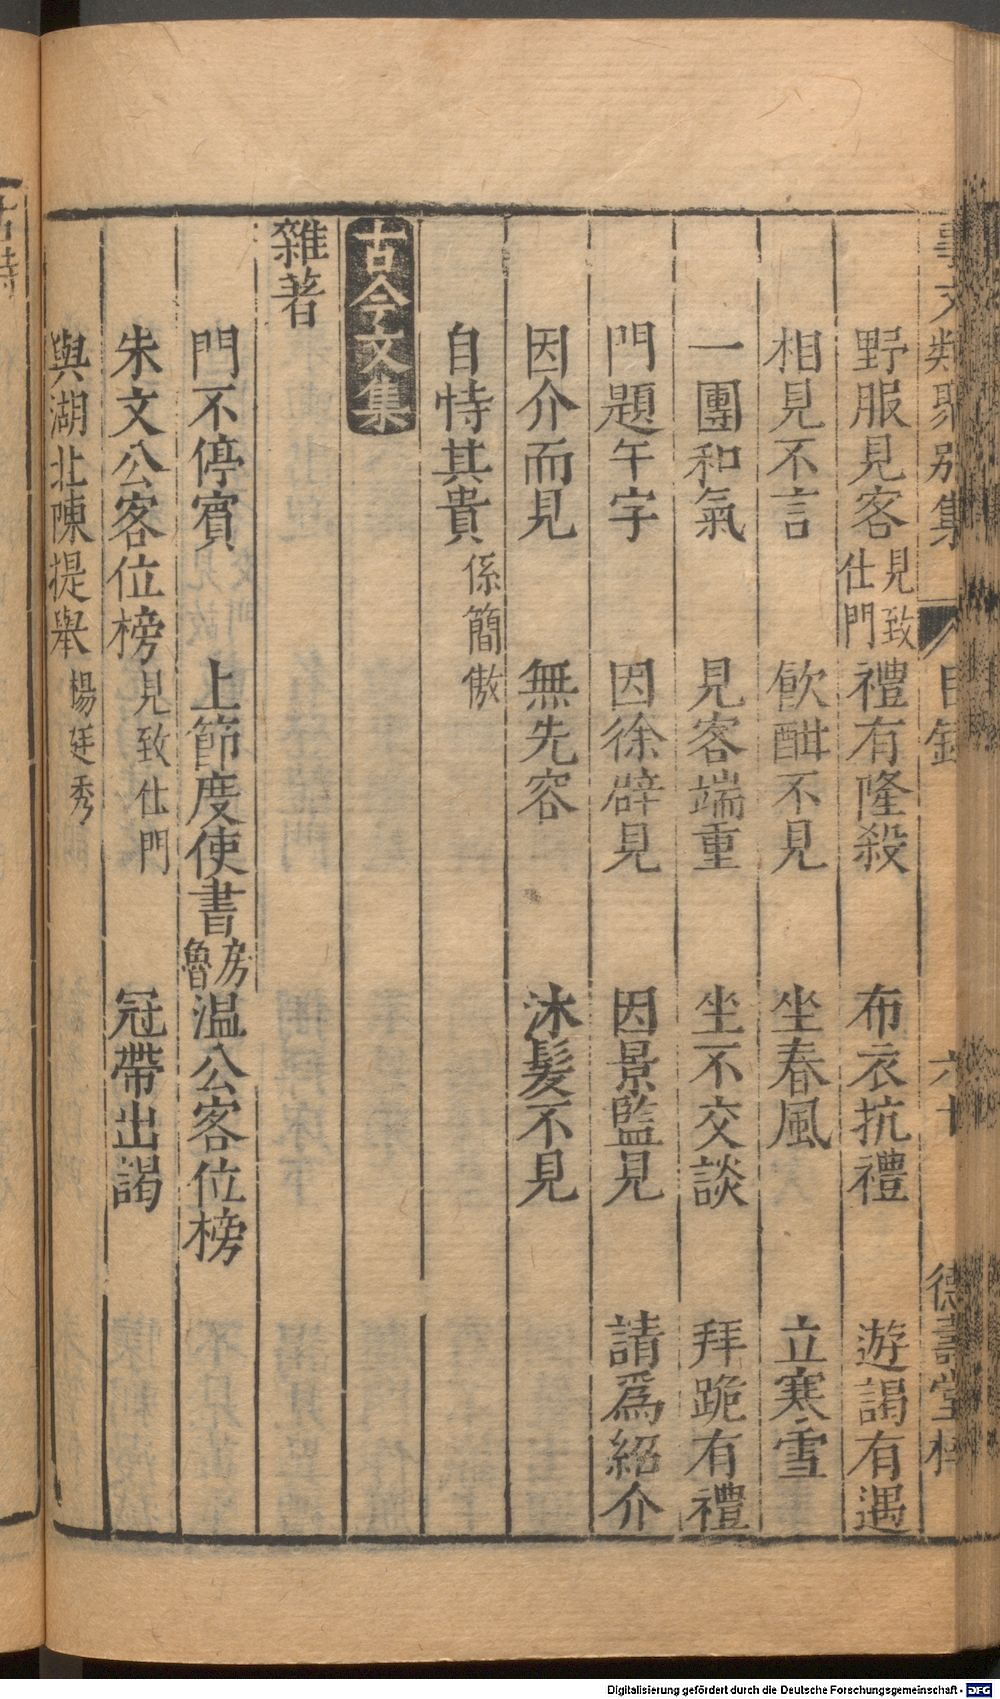 事文類聚別集 目錄 六十 德壽堂梓
野服見客 見致仕門 禮有隆殺 布衣抗禮 遊謁有遇
相見不言 飲酣不見 坐春風 立寒雪
一團和氣 見客端重 坐不交談 拜跪有禮
門題午字 因徐辟見 因景監見 請爲紹介
因介而見 無先容 沐髮不見
自恃其貴 係簡傲
古今文集
雜著
門不停賓 上節度使書 房魯 温公客位榜
朱文公客位榜 見致仕門 冠帶出謁
與湖北陳提舉 楊廷秀
Digitalisierung gefördert durch die Deutsche Forschungsgemeinschaft - DFG